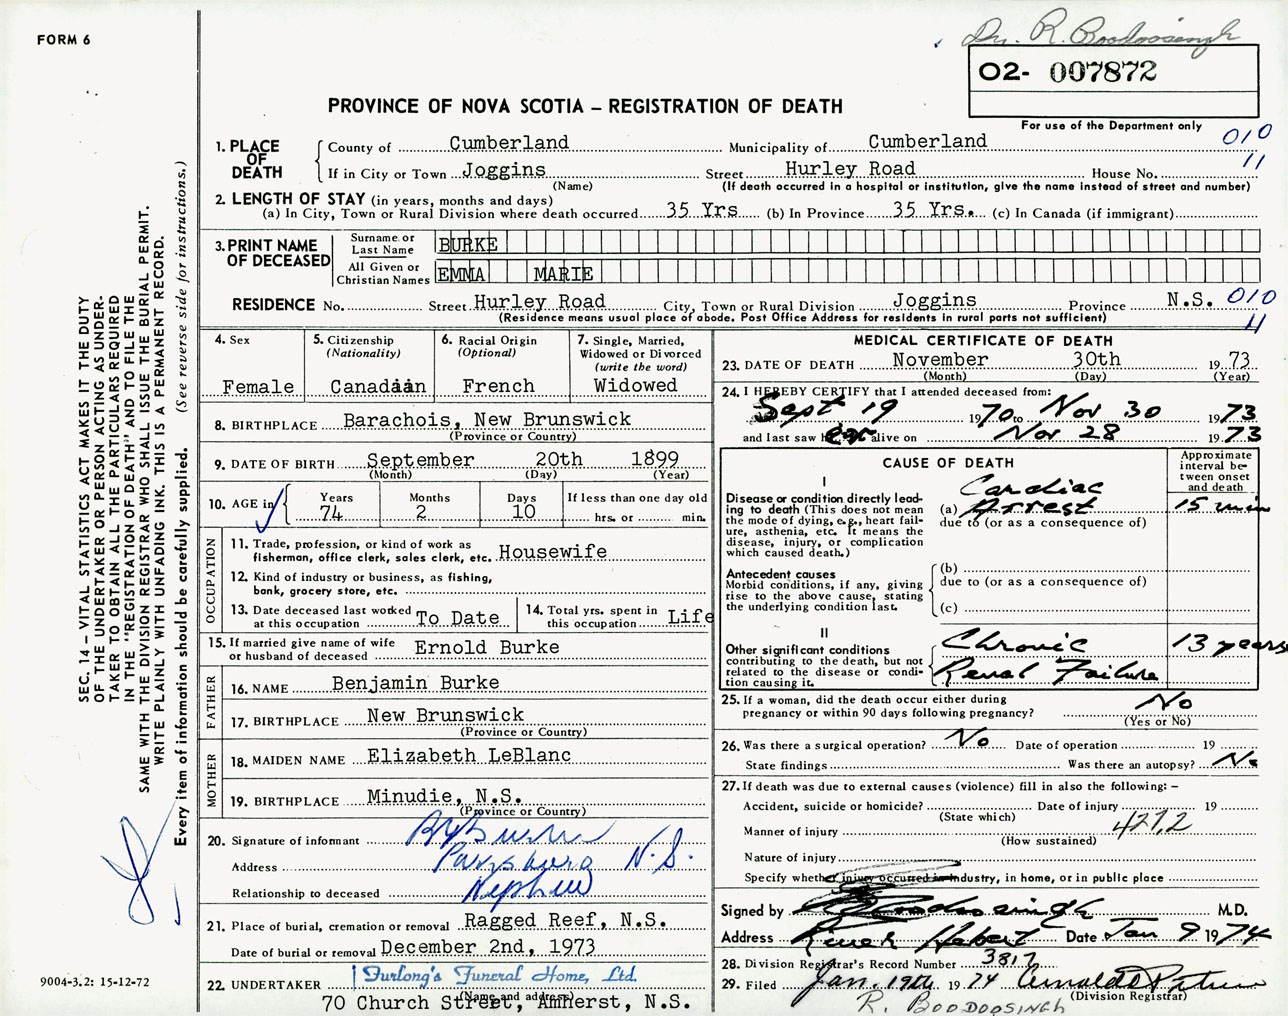 FORM 6
Dr. R. Boodoosingh
O2- 007872
PROVINCE OF NOVA SCOTIA – REGISTRATION OF DEATH
For use of the Department only
010
11
1. PLACE OF DEATH
County of Cumberland Municipality of Cumberland
If in City or Town Joggins Street Hurley Road House No.
(Name) (If death occurred in a hospital or institution, give the name instead of street and number)
2. LENGTH OF STAY (in years, months and days)
(a) In City, Town or Rural Division where death occurred 35 Yrs (b) In Province 35 Yrs. (c) In Canada (if immigrant)
3. PRINT NAME OF DECEASED
Surname or Last Name BURKE
All Given or Christian Names EMMA MARIE
RESIDENCE No. Street Hurley Road City, Town or Rural Division Joggins Province N.S. 010
(Residence means usual place of abode. Post Office Address for residents in rural parts not sufficient) 11
4. Sex
Female
5. Citizenship
(Nationality)
Canadian
6. Racial Origin
(Optional)
French
7. Single, Married,
Widowed or Divorced
(write the word)
Widowed
8. BIRTHPLACE Barachois, New Brunswick
(Province or Country)
9. DATE OF BIRTH September 20th 1899
(Month) (Day) (Year)
10. AGE in
Years Months Days If less than one day old
74 2 10 hrs. or min.
OCCUPATION
11. Trade, profession, or kind of work as
fisherman, office clerk, sales clerk, etc. Housewife
12. Kind of industry or business, as fishing,
bank, grocery store, etc.
13. Date deceased last worked
at this occupation To Date
14. Total yrs. spent in
this occupation Life
15. If married give name of wife
or husband of deceased Ernold Burke
FATHER
16. NAME Benjamin Burke
17. BIRTHPLACE New Brunswick
(Province or Country)
MOTHER
18. MAIDEN NAME Elizabeth LeBlanc
19. BIRTHPLACE Minudie, N.S.
(Province or Country)
20. Signature of informant
Address Parrsboro N.S.
Relationship to deceased Nephew
21. Place of burial, cremation or removal Ragged Reef, N.S.
Date of burial or removal December 2nd, 1973
22. UNDERTAKER Furlong's Funeral Home, Ltd.
(Name and address)
70 Church Street, Amherst, N.S.
MEDICAL CERTIFICATE OF DEATH
23. DATE OF DEATH November 30th 1973
(Month) (Day) (Year)
24. I HEREBY CERTIFY that I attended deceased from:
Sept 19 1970 to Nov 30 1973
and last saw her alive on Nov 28 1973
CAUSE OF DEATH
Approximate
interval be-
tween onset
and death
I
Disease or condition directly lead-
ing to death (This does not mean
the mode of dying, e.g., heart fail-
ure, asthenia, etc. It means the
disease, injury, or complication
which caused death.)
Cardiac
(a) Arrest 15 min
due to (or as a consequence of)
Antecedent causes
Morbid conditions, if any, giving
rise to the above cause, stating
the underlying condition last.
(b)
due to (or as a consequence of)
(c)
II
Other significant conditions
contributing to the death, but not
related to the disease or condi-
tion causing it.
Chronic 13 years
Renal Failure
25. If a woman, did the death occur either during
pregnancy or within 90 days following pregnancy? No
(Yes or No)
26. Was there a surgical operation? No Date of operation 19
State findings Was there an autopsy? No
27. If death was due to external causes (violence) fill in also the following: –
Accident, suicide or homicide? Date of injury 19
(State which)
Manner of injury 427.2
(How sustained)
Nature of injury
Specify whether injury occurred in industry, in home, or in public place
Signed by Boodoosingh M.D.
Address River Hebert Date Jan 9 1974
28. Division Registrar's Record Number 3817
29. Filed Jan. 19th 1974
(Division Registrar)
R. BOODOOSINGH
SEC. 14 – VITAL STATISTICS ACT MAKES IT THE DUTY
OF THE UNDERTAKER OR PERSON ACTING AS UNDER-
TAKER TO OBTAIN ALL THE PARTICULARS REQUIRED
IN THE "REGISTRATION OF DEATH" AND TO FILE THE
SAME WITH THE DIVISION REGISTRAR WHO SHALL ISSUE THE BURIAL PERMIT.
WRITE PLAINLY WITH UNFADING INK. THIS IS A PERMANENT RECORD.
Every item of information should be carefully supplied. (See reverse side for instructions.)
9004-3.2: 15-12-72